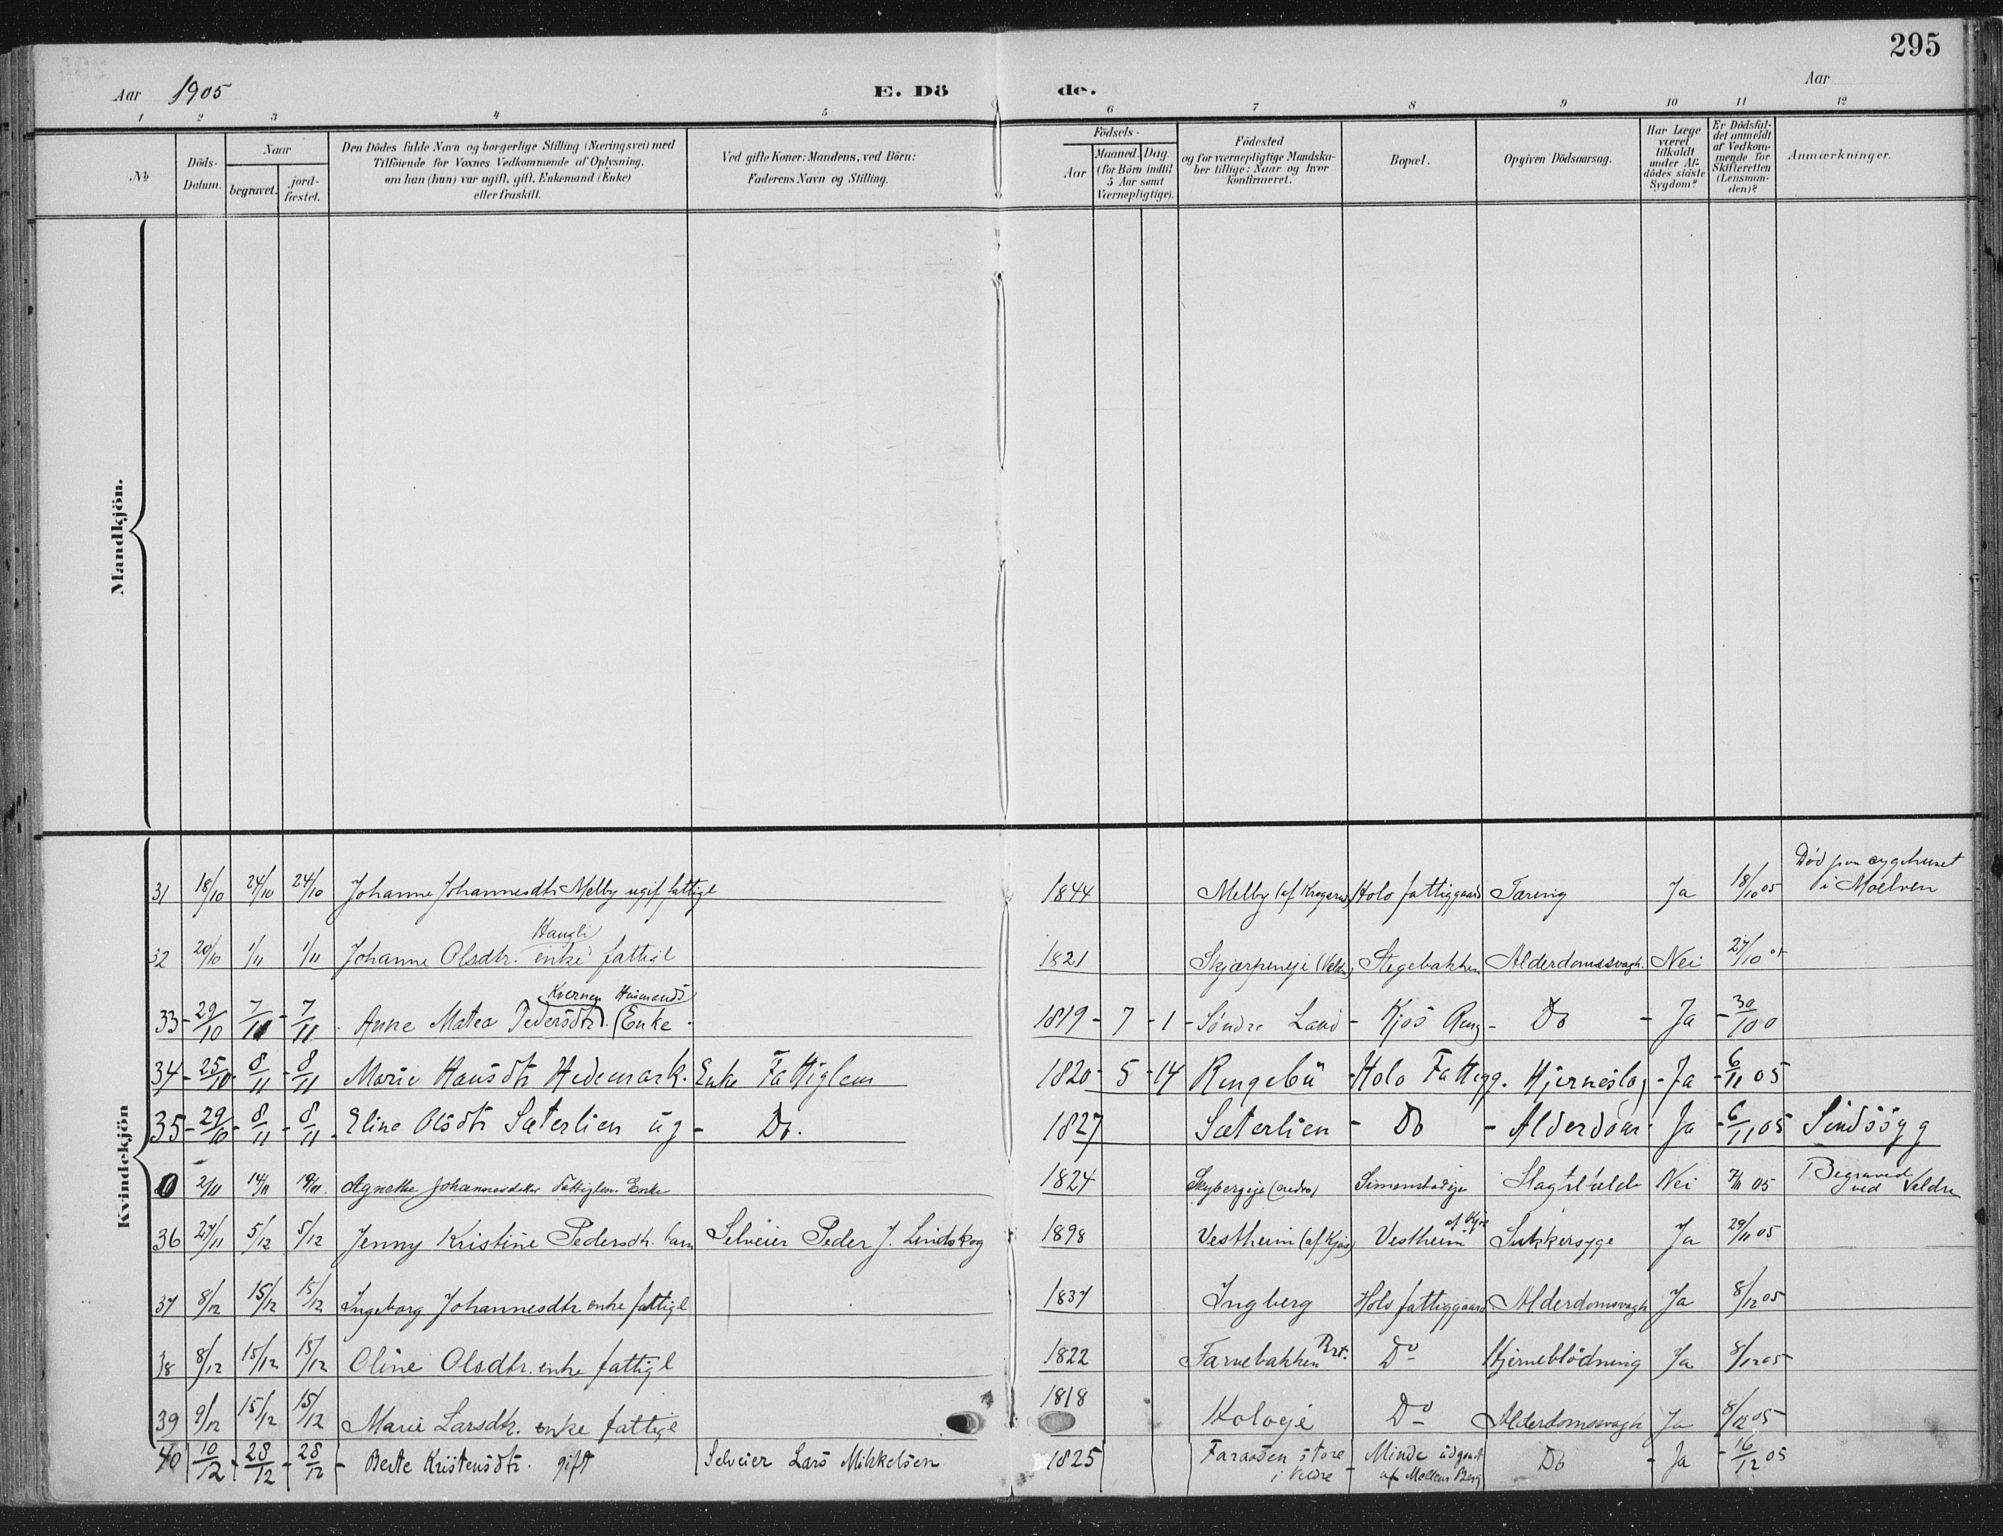 295
Aar 1905
E. Dö
de.
Aar
1 2 3 4 5 6 7 8 9 10 11 12
No
Döds-
Datum.
Naar
begravet.
jord-
fæstet.
Den Dödes fulde Navn og borgerlige Stilling (Næringsvei) med
Tilföiende for Voxnes Vedkommende af Oplysning,
om han (hun) var ugift, gift, Enkemand (Enke)
eller fraskilt.
Ved gifte Koner: Mandens, ved Börn:
Faderens Navn og Stilling.
Födsels-
Aar
Maaned. Dag.
(for Börn indtil
5 Aar samt
Værnepligtige).
Födested
og for værnepligtige Mandska-
ber tillige: Naar og hvor
konfirmeret.
Bopæl.
Opgiven Dödsaarsag.
Har Læge
været
tilkaldt
under Af-
dödes sidste
Sygdom?
Er Dödsfal-
det anmeldt
af Vedkom-
mende for
Skifteretten
(Lensman-
den)?
Anmærkninger.
Mandkjön.
Kvindekjön
31 18/10 24/10 24/10 Johanne Johannesdtr Melby ugif fattigl 1844 Melby (af Holo fattiggaard Tæring Ja 18/10 05 Död paa sygehuset
i Moelven
32 20/10 1/11 1/11 Johanne Olsdtr. Haugli enke fattigl 1821 Stegebakken Alderdomssvagh. Nei 27/10
33 - 29/10 7/11 - 7/11 Anne Matea Pedersdtr. Kvernen Husmands (Enke 1819 - 7 - 1 - Søndre Land - Kjos Ring - Do - Ja - 30/10 0
34 - 25/10 - 8/11 - 8/11 Marie Hansdtr Hedemark. Enke Fattiglem 1820 - 5 - 14 Ringebu - Holo Fattigg. Hjerneslag - Ja - 6/11 05
35 - 29/10 - 8/11 - 8/11 Eline Olsdtr Sæterlien ug - Do. 1827 Sæterlien - Do - Alderdom - Ja - 6/11 05 Sindssyg
0 2/11 14/11 14/11 Agnethe Johannesdatter Fattiglem Enke 1824 Skybergeje (nedre) Simenstadeje Nei 7/11 05 Begravet
ved Veldre
36 27/11 5/12 5/12 Jenny Kristine Pedersdtr. barn Selveier Peder J. Lindskog 1898 Vestheim (af Kjos) Vestheim af Kjos Sukkersyge Ja 29/11 05
37 8/12 15/12 15/12 Ingeborg Johannesdtr enke fattigl 1837 Ingberg Holo fattiggaard Alderdomsvagh Ja 8/12 05
38 8/12 15/12 15/12 Oline Olsdtr. enke fattigl 1822 Farnebakken Brt. Do Hjerneblødning Ja 8/12 05
39 9/12 15/12 15/12 Marie Larsdtr. enke fattigl 1818 Holoeje Do Alderdomssvagh Ja 8/12 05
40 10/12 - 28/12 - 28/12 - Berte Kristensdtr. gift Selveier Lars Mikkelsen 1825 Faraasen store
i Veldre - Minde udgaat
af Moelven Berg Do - Ja - 16/12 05